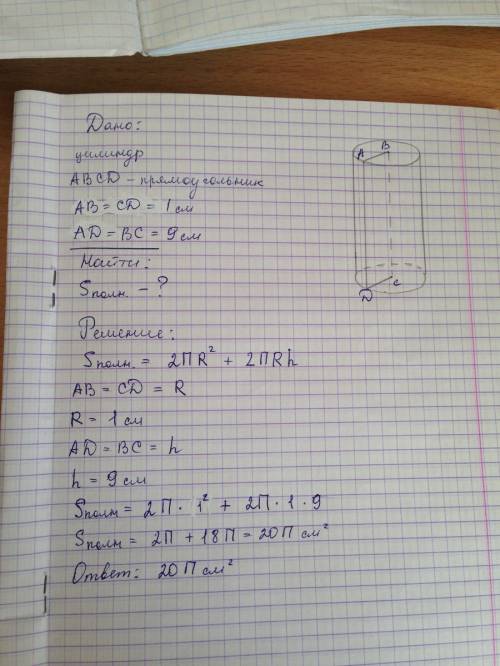 Дано:
цилиндр
ABCD - прямоугольник
AB = CD = 1 см
AD = BC = 9 см
Найти:
Sполн. - ?
Решение:
Sполн. = 2ПR² + 2ПRh
AB = CD = R
R = 1 см
AD = BC = h
h = 9 см
Sполн = 2П · 1² + 2П · 1 · 9
Sполн = 2П + 18П = 20П см²
Ответ: 20П см²
B
A
C
D